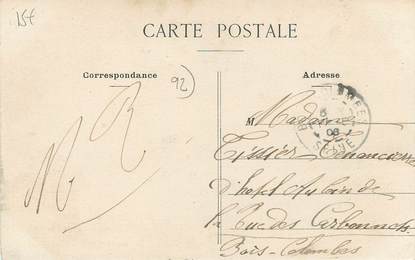 15€
CARTE POSTALE
Correspondance
92
Adresse
M R
Madame
Tissier Financière
d'hotel au coin de
la Rue des Carbonnets
Bois-Colombes
SEINE